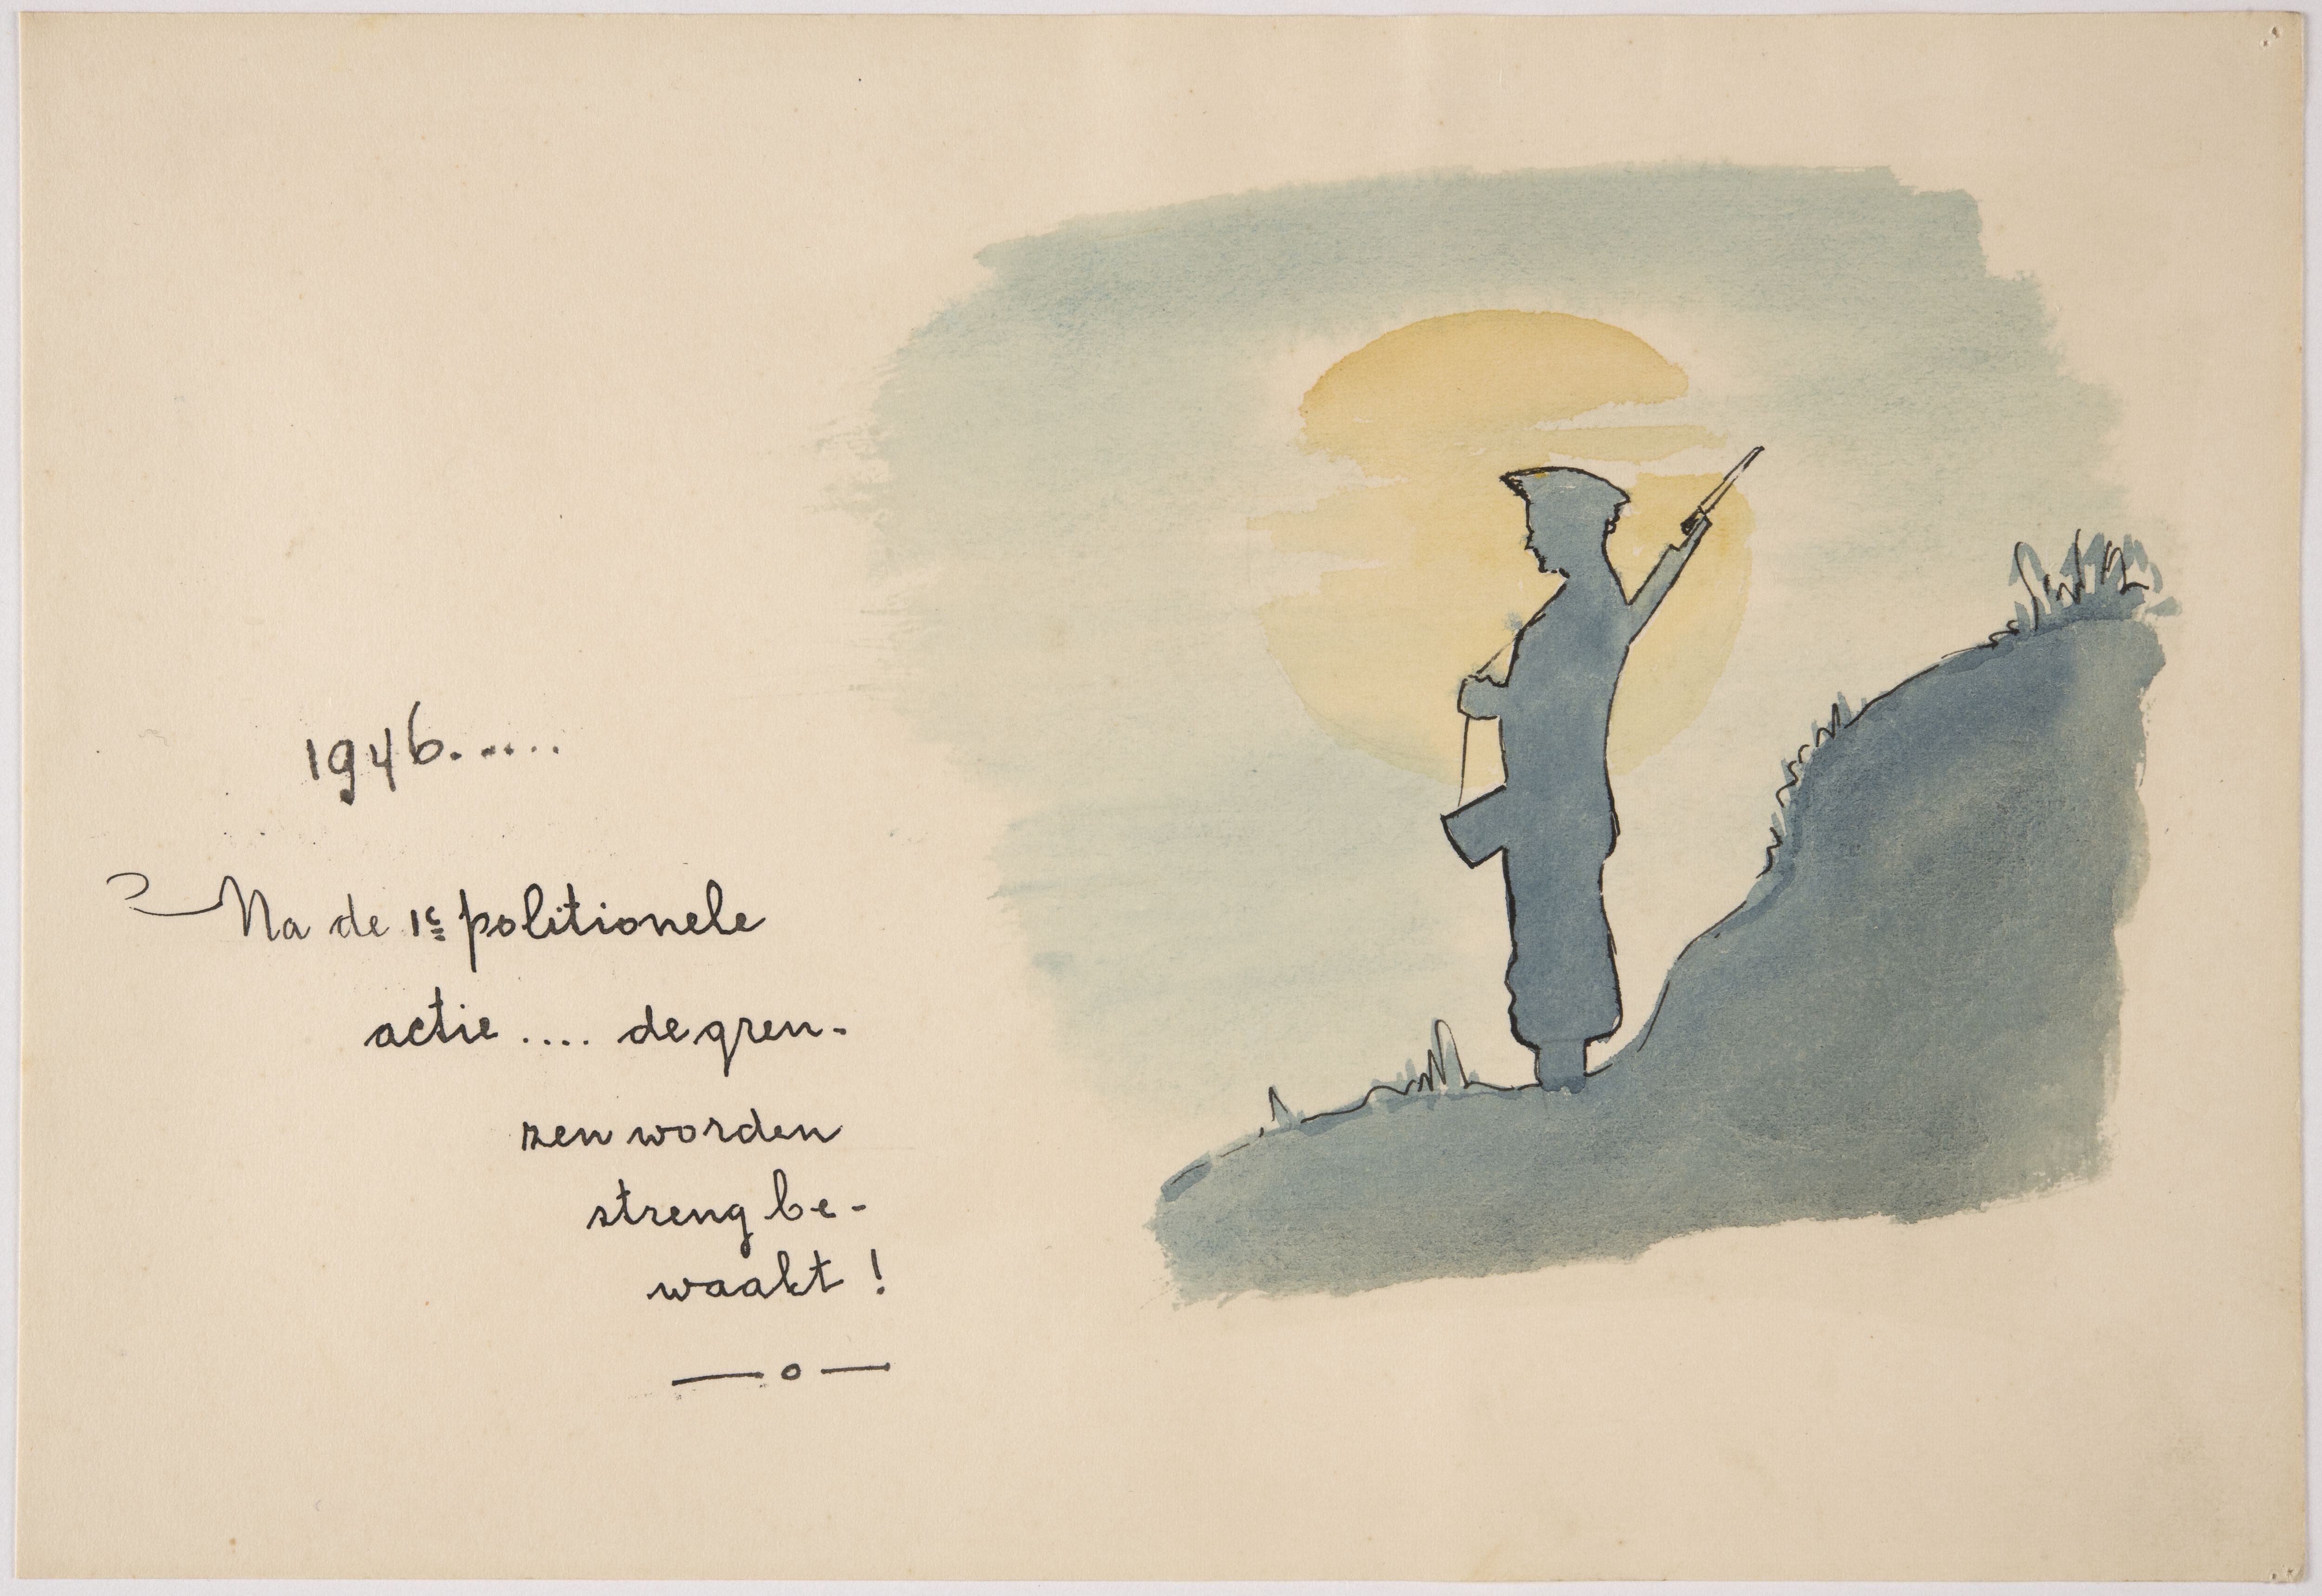 1946......
Na de 1e politionele
actie .... de gren-
zen worden
streng be-
waakt !